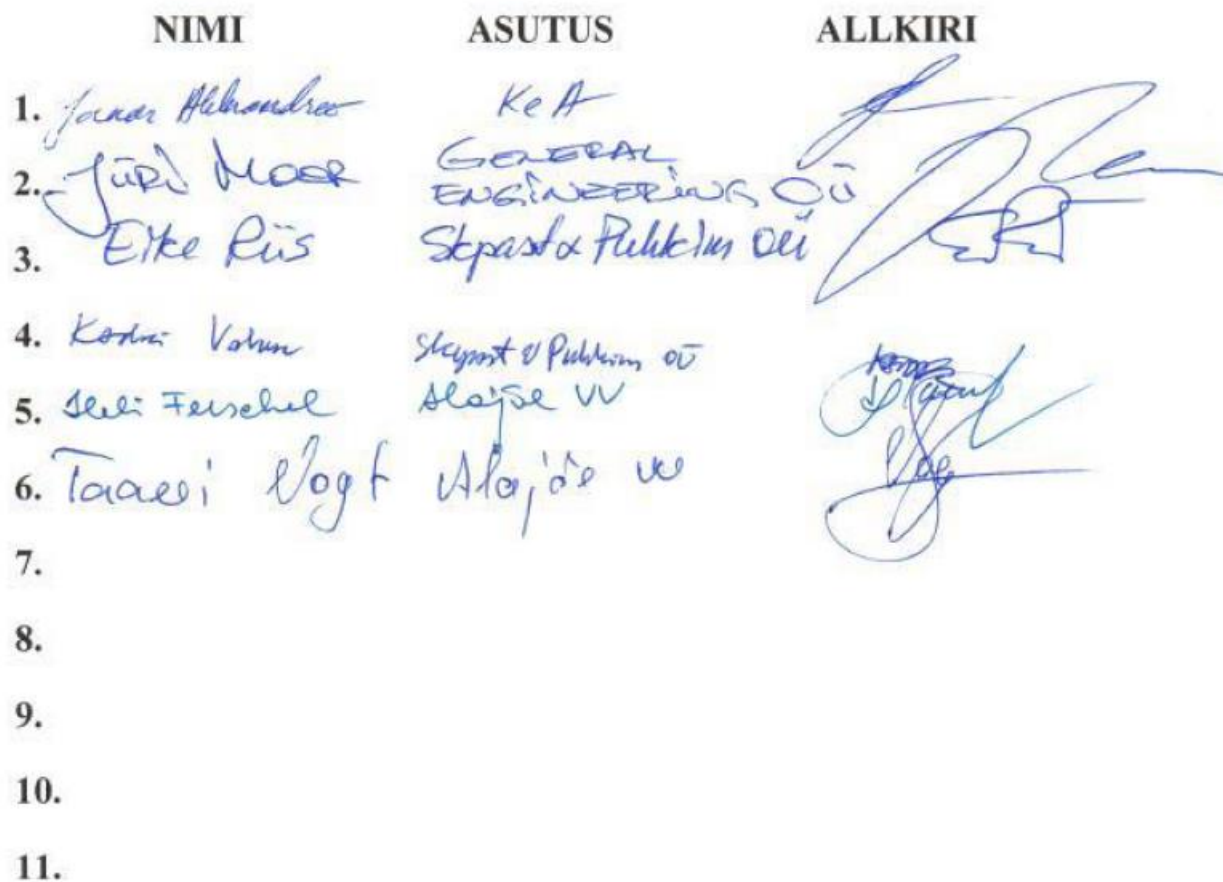 NIMI ASUTUS ALLKIRI
1. Janar Aleksandrov KeA
2. JÜRI MOOR GENERAL ENGINEERING OÜ
3. Eike Riis Skpast & Puhkim OÜ
4. Kadri Vahur Skpast & Puhkim OÜ
5. Heli Ferschel Alajõe VV
6. Taavi Vogt Alajõe VV
7.
8.
9.
10.
11.